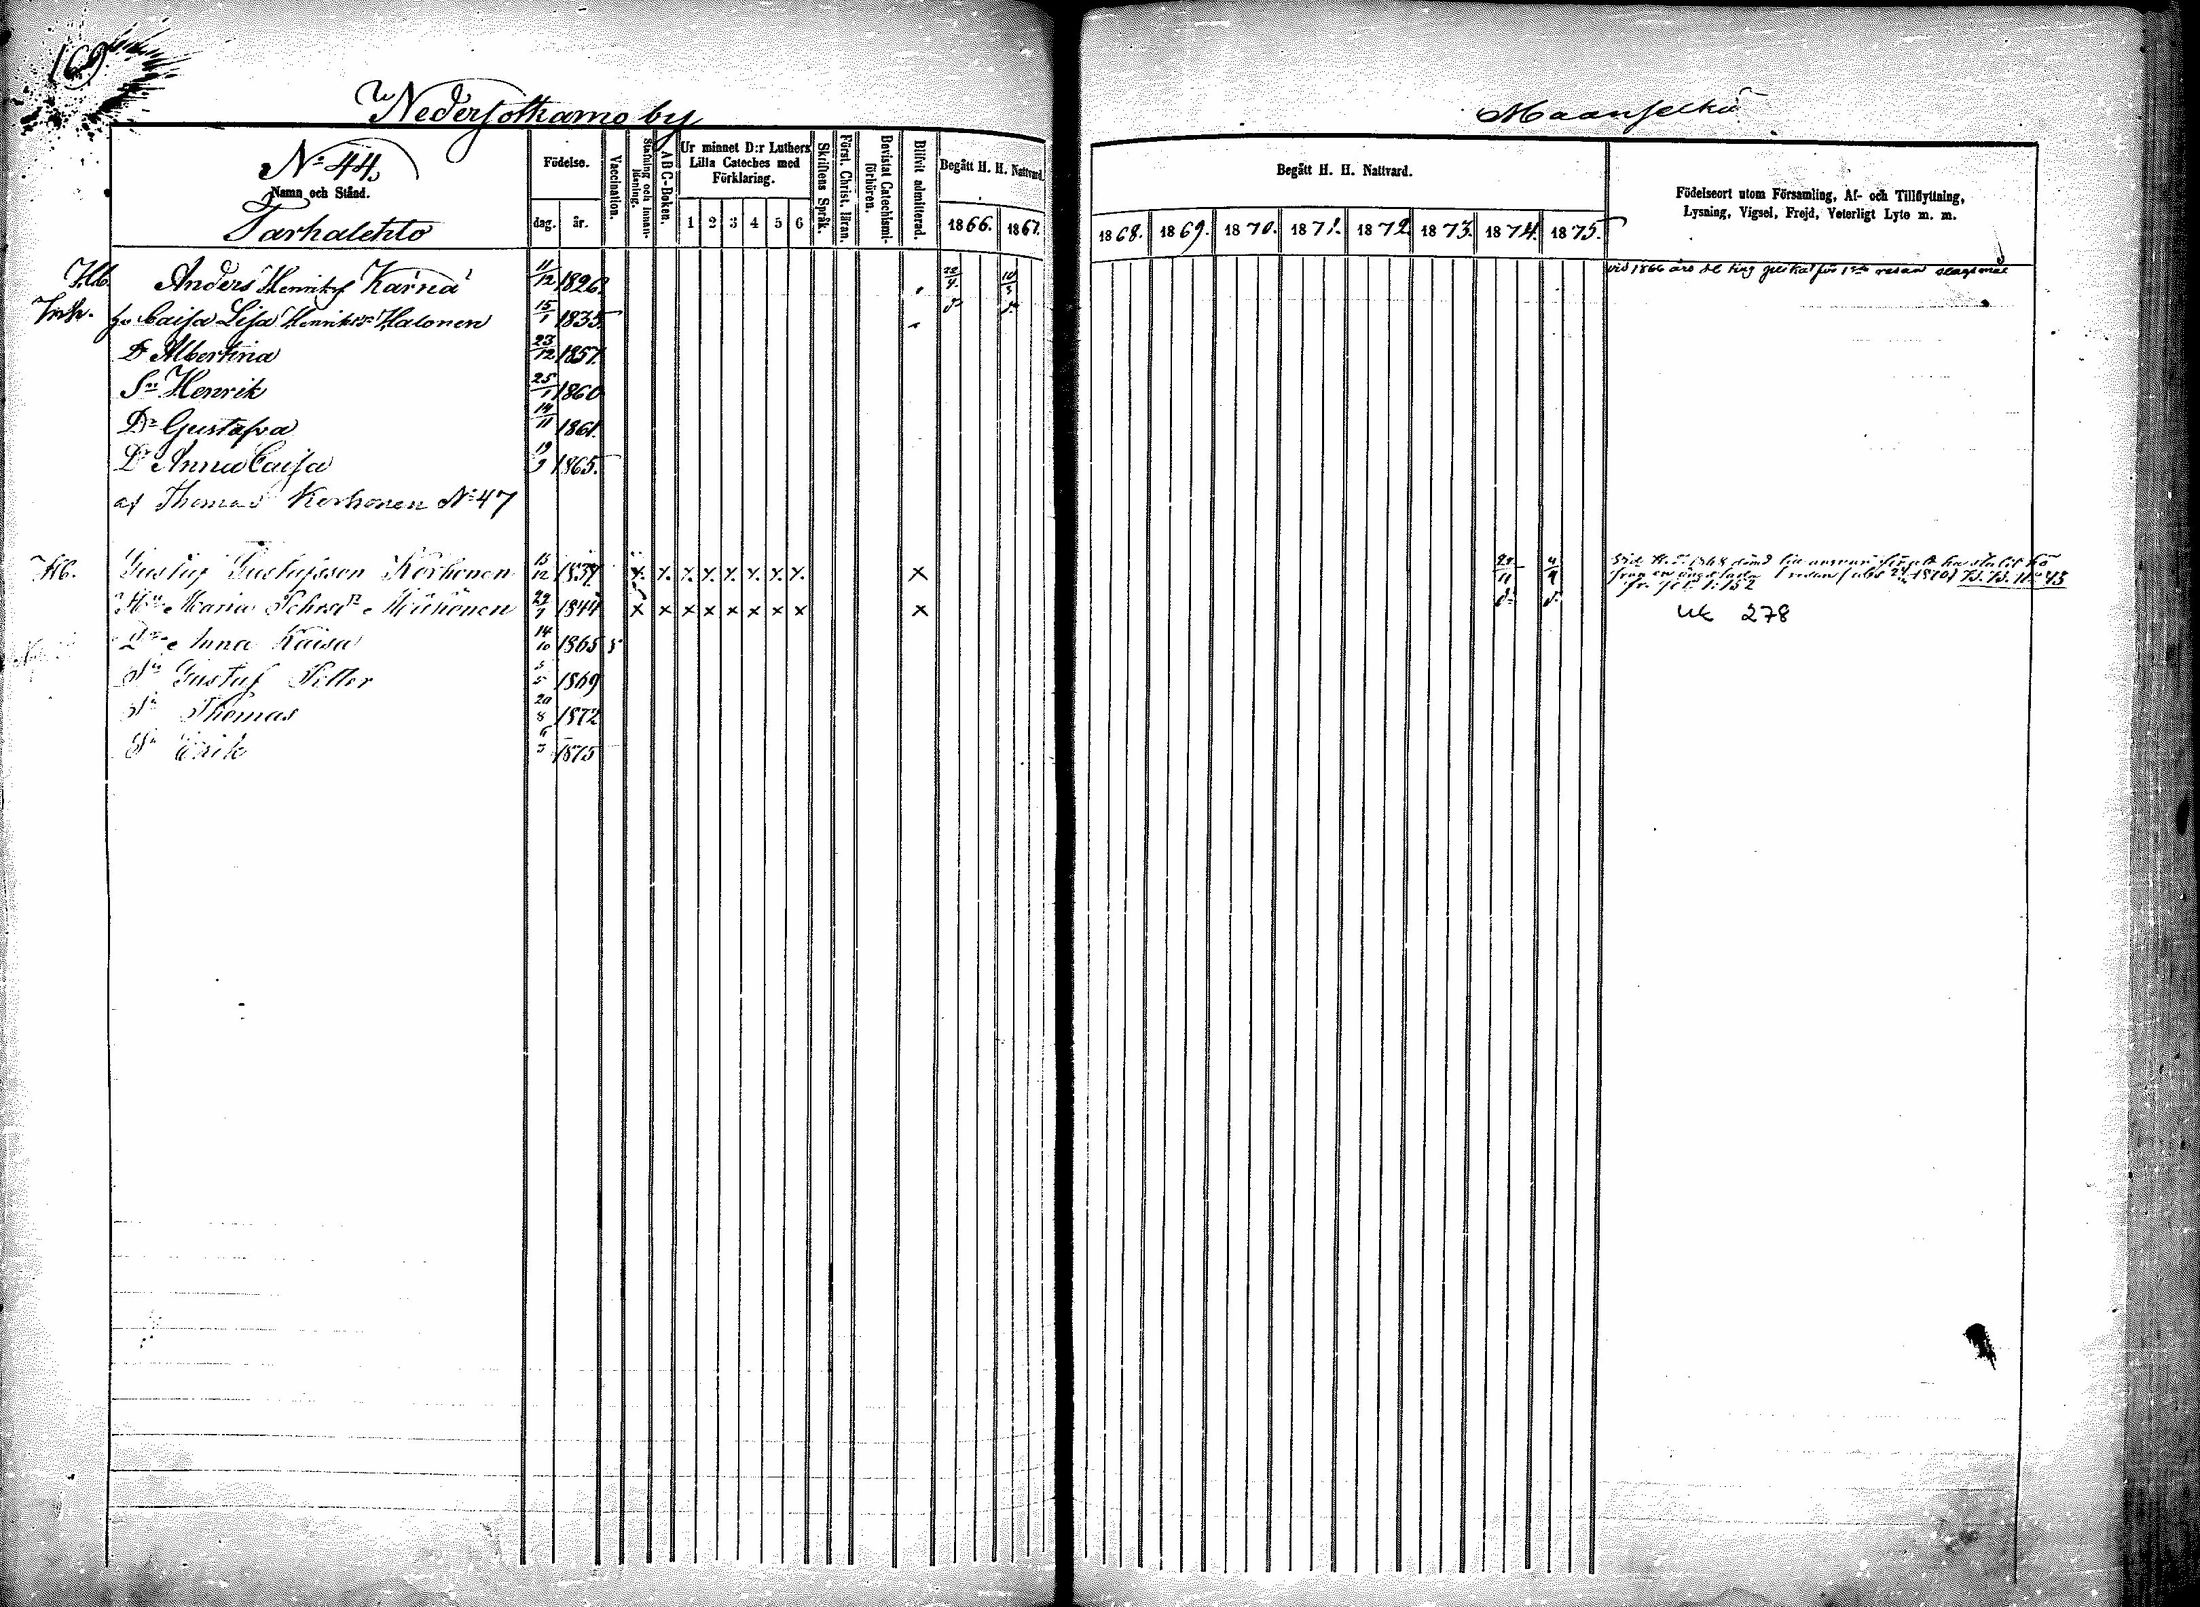 169
Nedersotkamo by
Maanselkä
N:o 44.
Namn och Stånd.
Tarhalehto
Födelse.
dag.
år.
Vaccination.
Stafning och innanläsning.
ABC-Boken.
Ur minnet D:r Luthers Lilla Cateches med Förklaring.
1 2 3 4 5 6
Skriftens Språk.
Först. Christ. läran.
Bevistat Catechismiförhören.
Blifvit admitterad.
Begått H. H. Nattvard.
1866. 1867.
Begått H. H. Nattvard.
1868. 1869. 1870. 1871. 1872. 1873. 1874. 1875.
Födelseort utom Församling, Af- och Tillflyttning,
Lysning, Vigsel, Frejd, Veterligt Lyte m. m.
Anders Henriksf Kärnä 11/12 1826.
vid 1866 års ting för 1sta resan
hu Caisa Lisa Henriksdr Halonen 15/1 1835
Dr Albertina 23/12 1857.
Sn Henrik 25/1 1860
Dr Gustafva 14/11 1861.
Dr Anna Caisa 19/9 1865.
af Thomas Korhonen N:o 47
Hb. Gustaf Gustafsson Korhonen 12 1839 x x x x x x x x x
Hu Maria Mähönen 29 1844 x x x x x x x x x
UK 278
Dr Anna Kaisa 14/10 1865
Sn Gustaf Petter 1869
Sn Thomas 20/8 1872
Sn Erik 1875